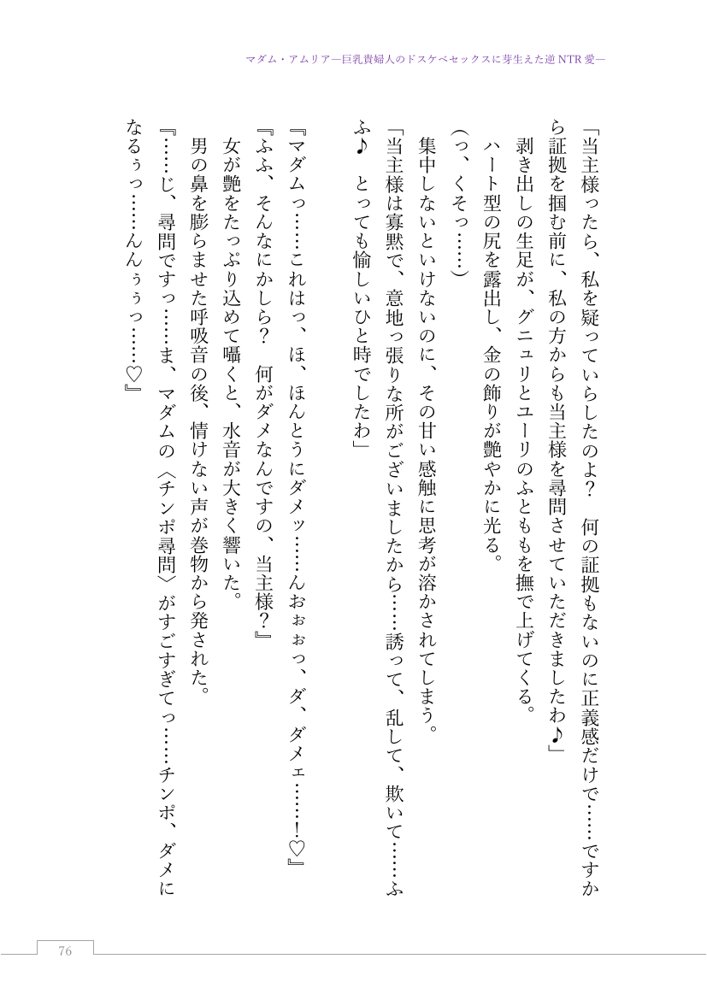 マダム・アムリア―巨乳貴婦人のドスケベセックスに芽生えた逆NTR愛―
「当主様ったら、私を疑っていらしたのよ？　何の証拠もないのに正義感だけで……ですか
ら証拠を掴む前に、私の方からも当主様を尋問させていただきましたわ♪」
剥き出しの生足が、グニュリとユーリのふとももを撫で上げてくる。
ハート型の尻を露出し、金の飾りが艶やかに光る。
(っ、くそっ……)
集中しないといけないのに、その甘い感触に思考が溶かされてしまう。
「当主様は寡黙で、意地っ張りな所がございましたから……誘って、乱して、欺いて……ふ
ふ♪　とっても愉しいひと時でしたわ」
『マダムっ……これはっ、ほ、ほんとうにダメッ……んおぉぉっ、ダ、ダメェ……！♡』
『ふふ、そんなにかしら？　何がダメなんですの、当主様？』
女が艶をたっぷり込めて囁くと、水音が大きく響いた。
男の鼻を膨らませた呼吸音の後、情けない声が巻物から発された。
『……じ、尋問ですっ……ま、マダムの〈チンポ尋問〉がすごすぎてっ……チンポ、ダメに
なるぅっ……んんぅぅっ……♡』
76